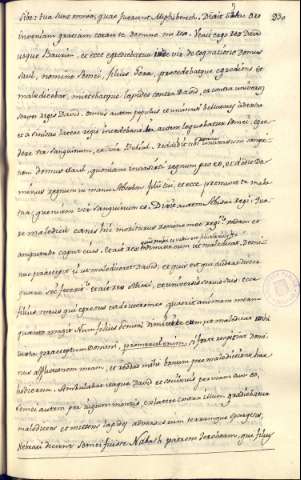 230
Siba: tua sunt omnia, quae fuerunt Miphiboseth. Dixit Siba: oro
inveniam gratiam coram te Domine mi rex. Venit ergo rex David
usque Baurim, et ecce egrediebatur inde vir de cognatione domus
Saul, nomine Semei, filius Gera, procedebatque egrediens et
maledicebat, mittebatque lapides contra David, et contra universos
servos regis David. omnis autem populus et universi bellatores a dextro
et a sinistro latere regis incedebant. ita autem loquebatur Semei, egre-
dere vir sanguinum, et vir Belial. Reddidit tibi Dominus universum sangui-
nem domus Saul, quoniam invasisti regnum pro eo, et dedit Do-
minus regnum in manu Absalon filii tui, et ecce premunt te ma-
la tua, quoniam vir sanguinum es. Dixit autem Abisai regi: Qua-
re maledicit canis hic moriturus domino meo regi? vadam et
amputabo caput eius. et ait rex dimitte eum ut maledicat, Domi-
nus praecepit ei ut malediceret David, et quis est qui audeat dicere
quare sic fecerit? et ait rex Abisai, et universis servis suis: Ecce
filius meus qui egressus est de utero meo quaerit animam meam
quanto magis Nunc filius Iemini dimitte eum ut maledicat iux-
ta praeceptum Domini, si forte respiciat Domi-
nus afflictionem meam, et reddat mihi bonum pro maledictione hac
hodierna. Ambulabat itaque David et socii eius per viam cum eo.
Semei autem per iugum montis, ex latere contra illum gradiebatur
maledicens et mittens lapides adversus eum terramque spargens.
dicunt Semei fuisse Nabath patrem Jeroboam, qui filius